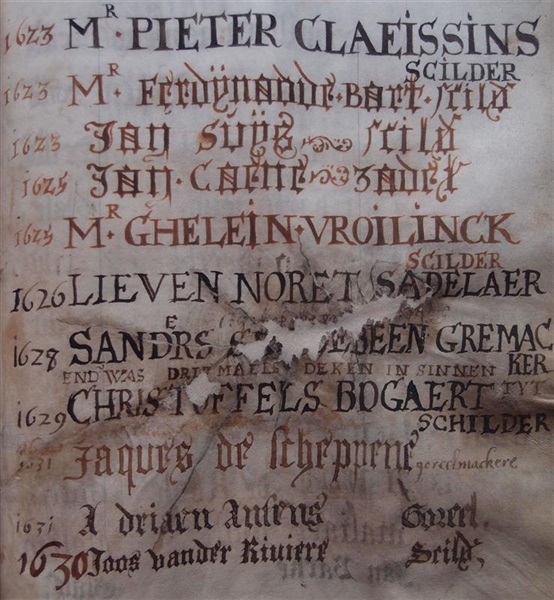 1623 MR · PIETER CLAEISSINS
SCILDER
1623 MR · Ferdÿnadde · Bart · scild
1623 Jan Suÿs scild
1625 Jan · Caene zadel
1625 MR GHELEIN · VROILINCK
SCILDER
1626 LIEVEN NORET SADELAER
1628 SANDERS GREMAC
KER
END WAS DRIT MAELS DEKEN IN SINNEN TYT
1629 CHRISTOFFELS BOGAERT
SCHILDER
1631 Jaques de scheppene goreelmackere
1631 Adriaen Ansens Goreel.
1630 Joos vander Riviere Scild.